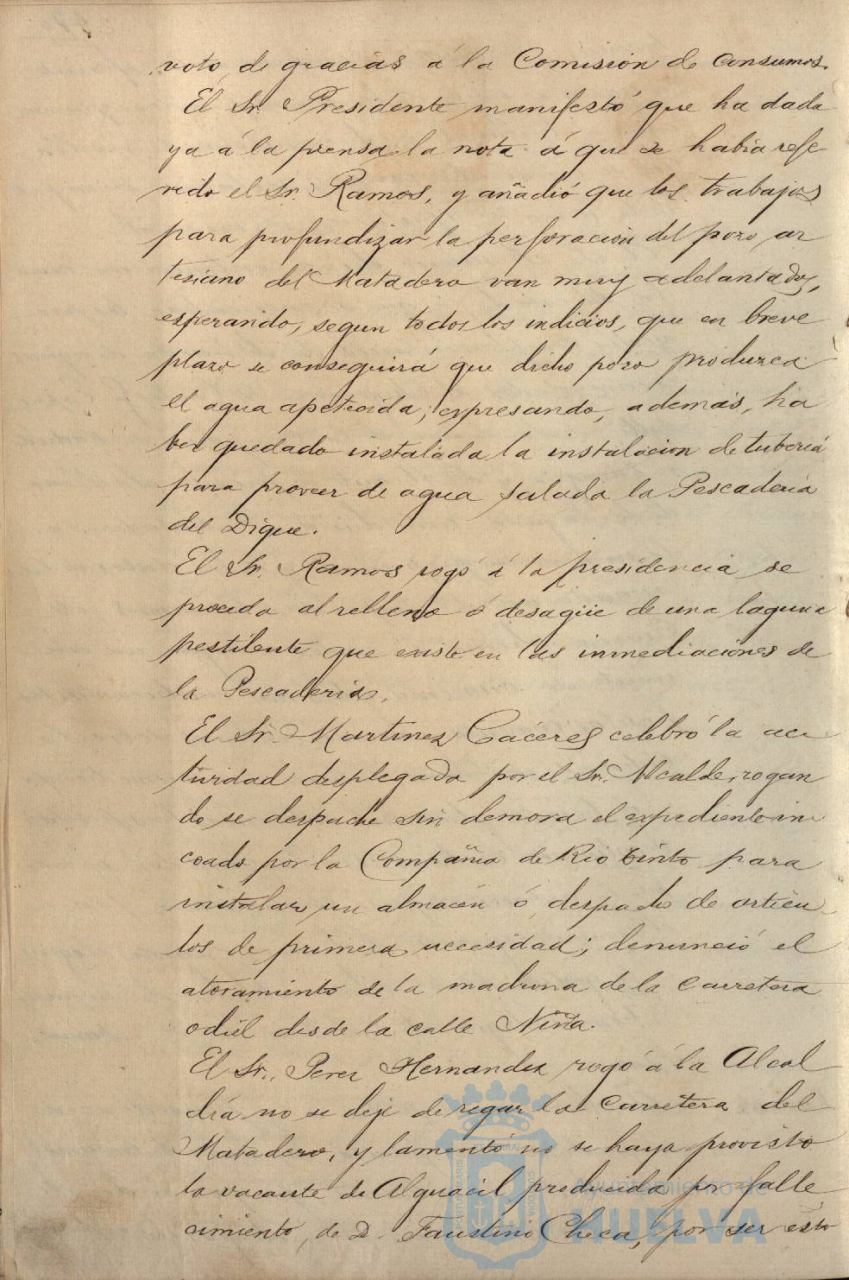 voto, de gracias á la Comisión de Consumos.
El Sr. Presidente manifestó que ha dada
ya á la prensa la nota á que se había refe
rido el Sr. Ramos, y añadió que los trabajos
para profundizar la perforación del pozo, ar
tesiano del Matadero van muy adelantados,
esperando, segun todos los indicios, que en breve
plazo se conseguirá que dicho pozo produzca
el agua apetecida, expresando, además, ha
ber quedado instalada la instalacion de tubería
para proveer de agua salada la Pescadería
del Dique.
El Sr. Ramos rogó á la presidencia, se
proceda al relleno ó desagüe de una laguna
pestilente que existe en las inmediaciones de
la Pescadería.
El Sr. Martinez Cáceres celebró la ac
tividad desplegada por el Sr. Alcalde, rogan
do se despache sin demora el expediente in
coado por la Compañia de Rio Tinto para
instalar un almacén ó despacho de articu
los de primera necesidad; denunció el
atoramiento de la madrona de la Carretera
odiel desde la calle Niña.
El Sr. Perez Hernandez rogó á la Alcal
día no se deje de regar la carretera del
Matadero, y lamentó no se haya provisto
la vacante de Alguacil producida por falle
cimiento, de D. Faustino Checa, por ser esto
Ayuntamiento de
HUELVA